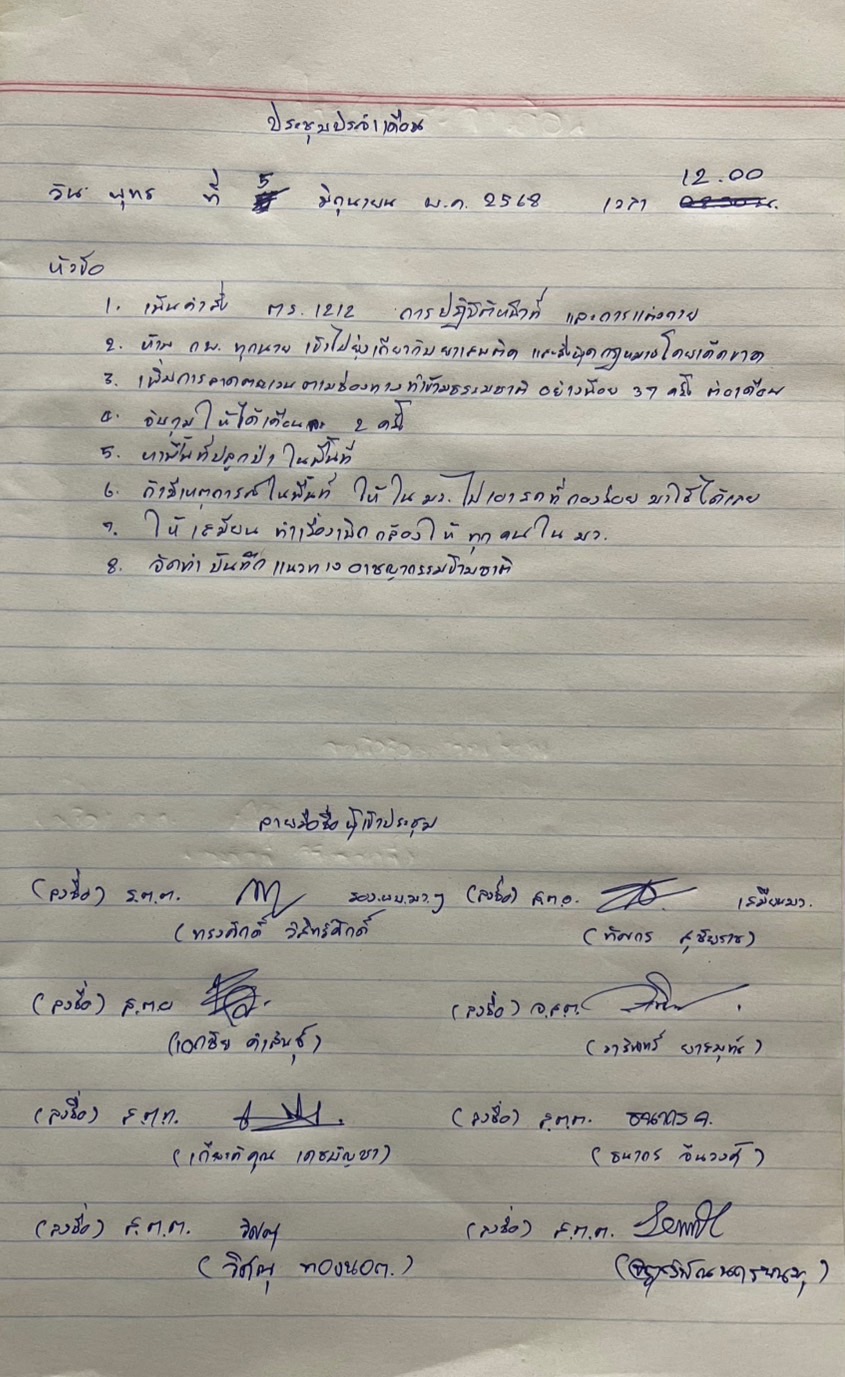 ประชุมประจำเดือน
วัน พุทธ ที่ 5 มิถุนายน พ.ศ. 2568 เวลา 12.00
หัวข้อ
1. เน้นคำสั่ง ตร. 1212 การปฏิบัติหน้าที่ และการแต่งกาย
2. ห้าม กพ. ทุกนาย เข้าไปยุ่งเกี่ยวกับยาเสพติด และสิ่งผิดกฎหมายโดยเด็ดขาด
3. เพิ่มการลาดตระเวน ตามช่องทาง ท่าข้ามธรรมชาติ อย่างน้อย 37 ครั้ง ต่อเดือน
4. จับกุม ให้ได้เดือนละ 2 ครั้ง
5. หาพื้นที่ปลูกป่า ในพื้นที่
6. ถ้ามีเหตุการณ์ในพื้นที่ ให้ใน มว. ไปเอารถที่กองร้อย มาใช้ได้เลย
7. ให้ เสมียน ทำเรื่องเบิก กล้องให้ ทุกคนใน มว.
8. จัดทำ บันทึก แนวทาง อาชญากรรมข้ามชาติ
ลายมือชื่อ ผู้เข้าประชุม
(ลงชื่อ) ร.ต.ต. รอง.ผบ.มว.ฯ (ลงชื่อ) ส.ต.อ. เสมียนมว.
(ทรงศักดิ์ วิสิทธิ์ศักดิ์) (ทัศกร สุชัยราช)
(ลงชื่อ) ส.ต.อ (ลงชื่อ) จ.ส.ต.
(เอกชัย คำสินธุ์)
(ลงชื่อ) ส.ต.ท. (ลงชื่อ) ส.ต.ต. ธนากร จ.
(เกียรติคุณ เดชบัญชา) (ธนากร จันวงค์)
(ลงชื่อ) ส.ต.ต. วิศณุ (ลงชื่อ) ส.ต.ต.
(วิศณุ ทองนอต.)